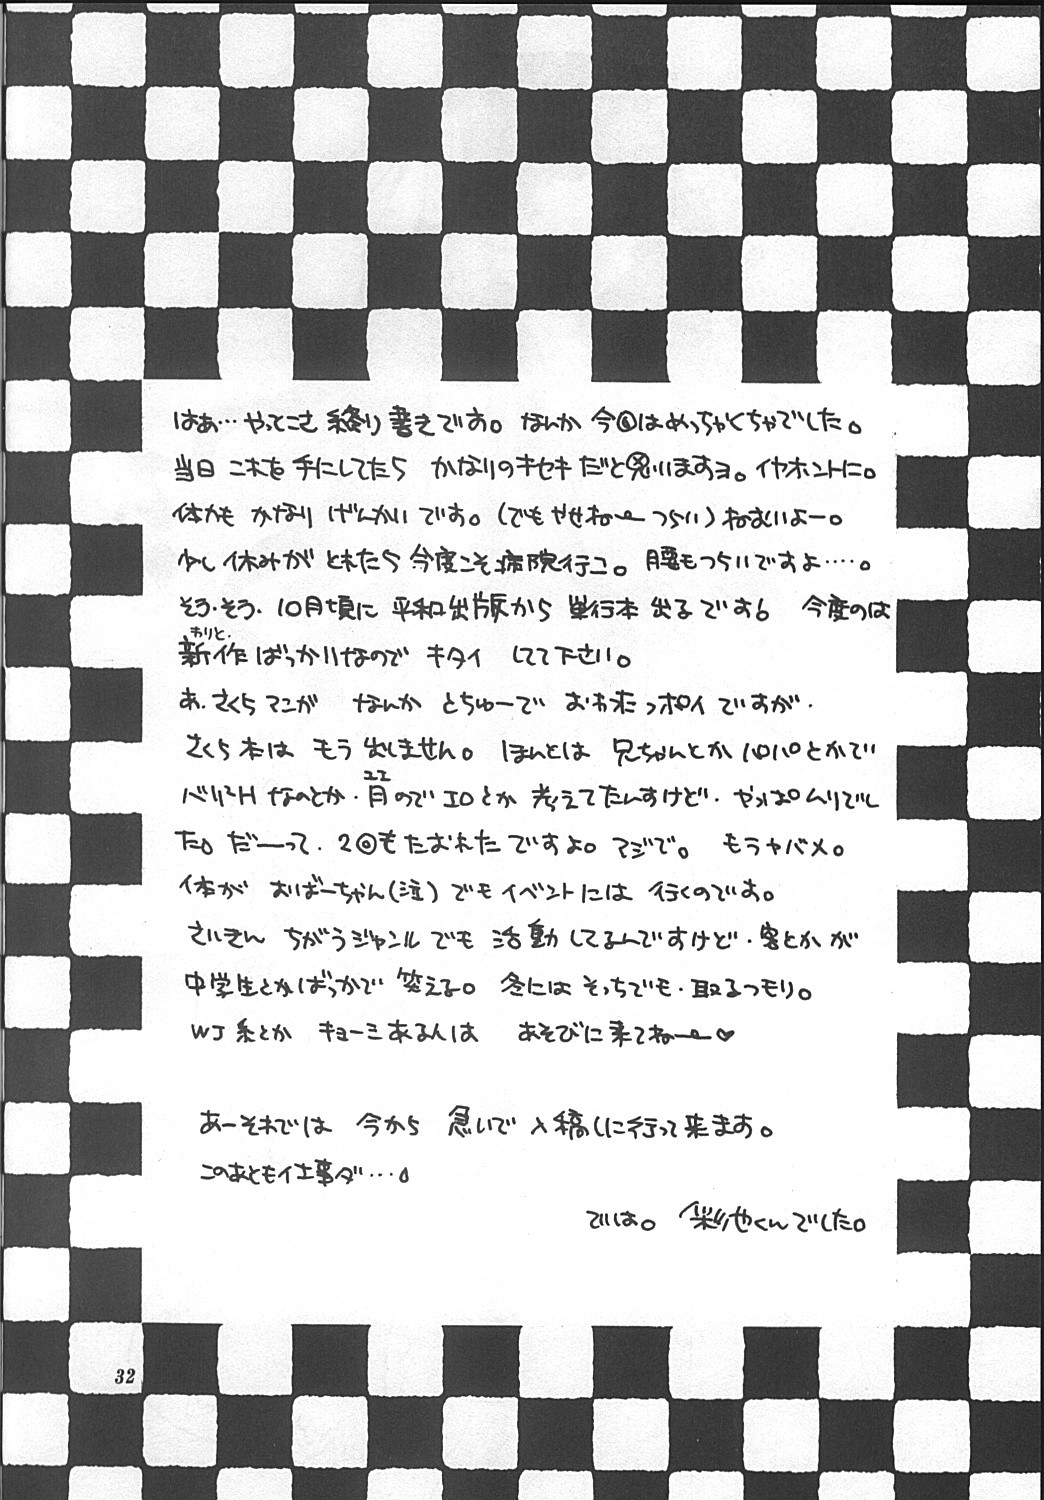 はあ…やってこさ 終り書きです。なんか 今回はめっちゃくちゃでした。
当日 これを 手にしてたら かなりのキセキ だと思いますヨ。イヤホントに。
体力も かなり げんかいです。(でもやせねー つらい)ねむいよー。
少し 休みが とれたら 今度こそ病院行こ。腰もつらいですよ…。
そう・そう・10月頃に 平和出版から 単行本 出るです。 今度のは
わりと.
新作 ばっかりなので キタイ してて下さい。
あ.さくらマンガ なんか とちゅーで おわたっポイですが.
さくら本は もう 出しません。ほんとは 兄ちゃんとか パパとかで
ベリーH なのとか・月のでエロとか 考えてたんすけど・やっぱムリでし
ユエ
た。だーって. 2回もたおれたですよ。マジで。 もうヤバメ。
体が おばーちゃん(泣)でもイベントには 行くのです。
さいきん ちがうジャンルでも 活動してるんですけど・客とかが
中学生とかばっかで 笑える。冬には そっちでも・取るつもり。
WJ系とか キョーミあるんは あそびに来てねー♥
あーそれでは 今から 急いで 入稿しに行って来ます。
このあともイ士事ダ…
では。 くんでした。
32